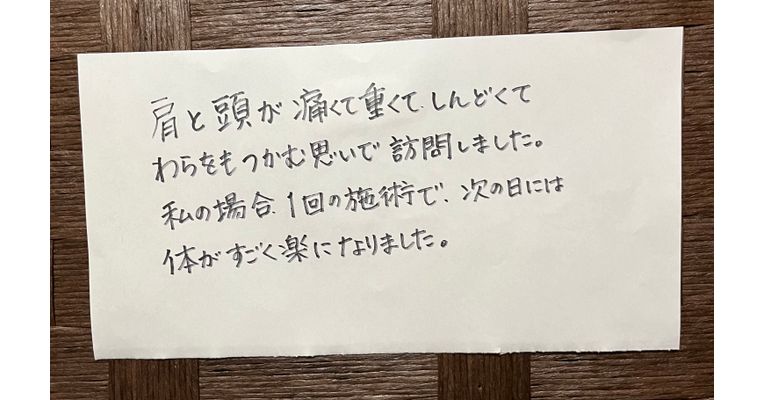 肩と頭が痛くて重くて、しんどくて
わらをもつかむ思いで訪問しました。
私の場合、1回の施術で、次の日には
体がすごく楽になりました。